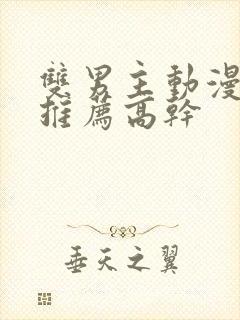 雙男主動漫
推薦高幹
垂天之翼